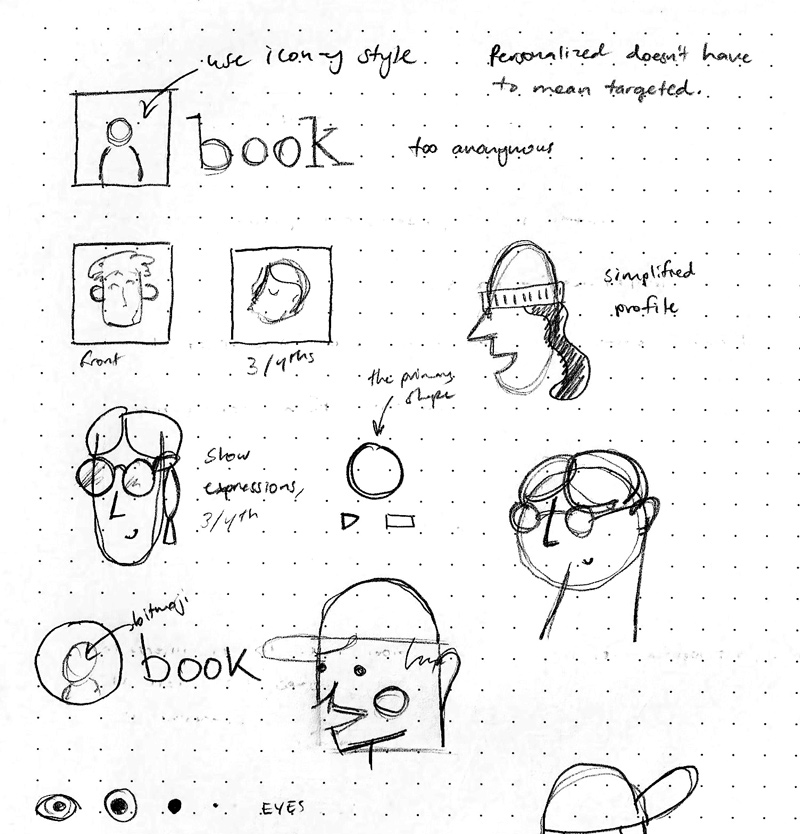 use icon-y style
Personalized doesn't have
to mean targeted.
book
too anonymous
simplified
profile
front
3/4ths
the primary
shape
Show
expressions,
3/4th
bitmoji
book
EYES